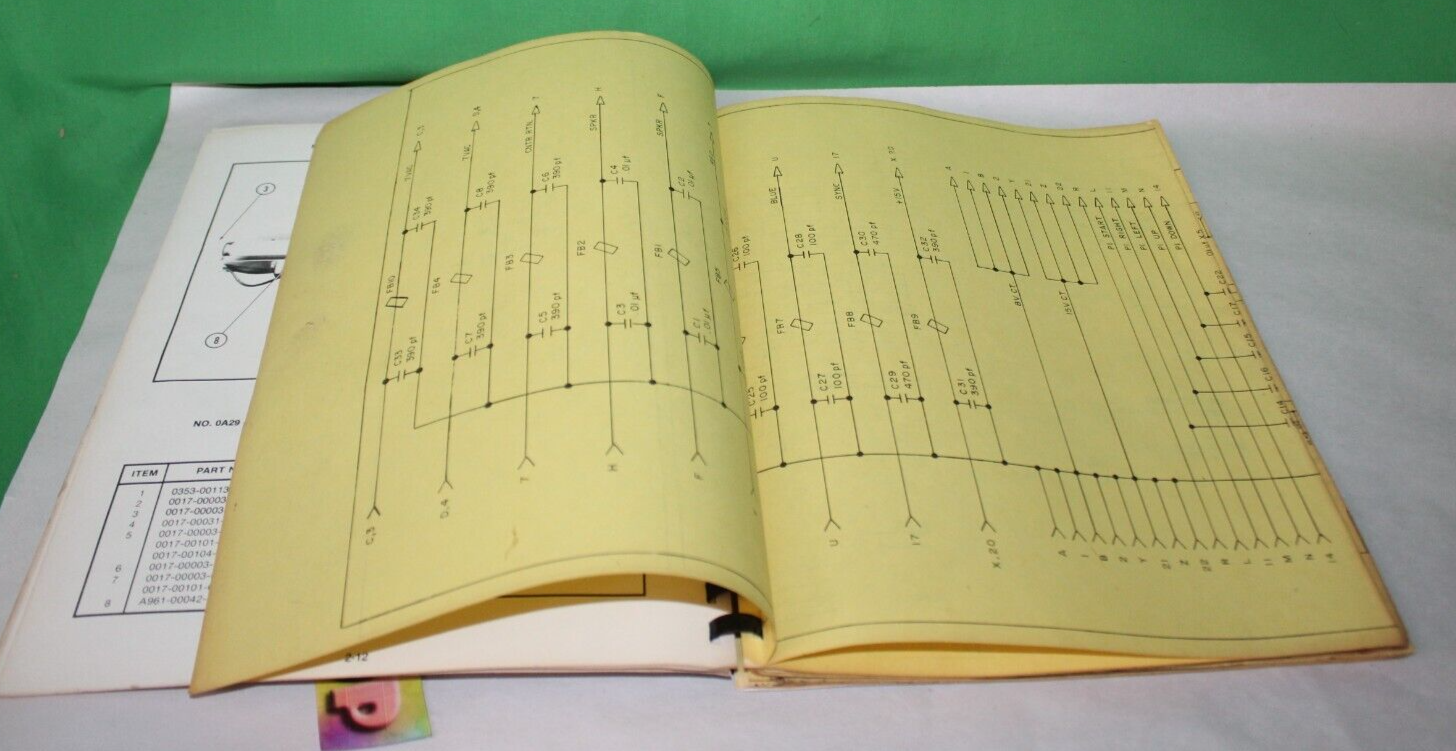 3
8
NO. 0A29
ITEM PART N
1 0353-00113
2 0017-00003
3 0017-00003
4 0017-00031
5 0017-00003-
0017-00101-
0017-00104-
6 0017-00003-
7 0017-00003-
0017-00101-
8 A961-00042-
2-12
TVAC C,3
C34
390 pf
FB10
C33
390 pf
C,3
TVAC D,4
C8
390 pf
FB4
C7
390 pf
D,4
CNTR RTN. 7
C6
390 pf
FB3
C5
390 pf
7
SPKR H
C4
.01 µf
FB2
C3
.01 µf
H
SPKR F
C2
.01 µf
FB1
C1
.01 µf
F
FB5
C26
100 pf
C25
100 pf
BLUE U
C28
100 pf
FB7
C27
100 pf
U
SYNC 17
C30
470 pf
FB8
C29
470 pf
17
+15V X,20
C32
390 pf
FB9
C31
390 pf
X,20
A
1
B
2
Y
21
Z
22
R
L
11
M
N
14
8V CT
15V CT
P1 START
P1 RIGHT
P1 LEFT
P1 UP
P1 DOWN
C22
C17
C15
C16
C14
A
1
B
2
Y
21
Z
22
R
L
11
M
N
14